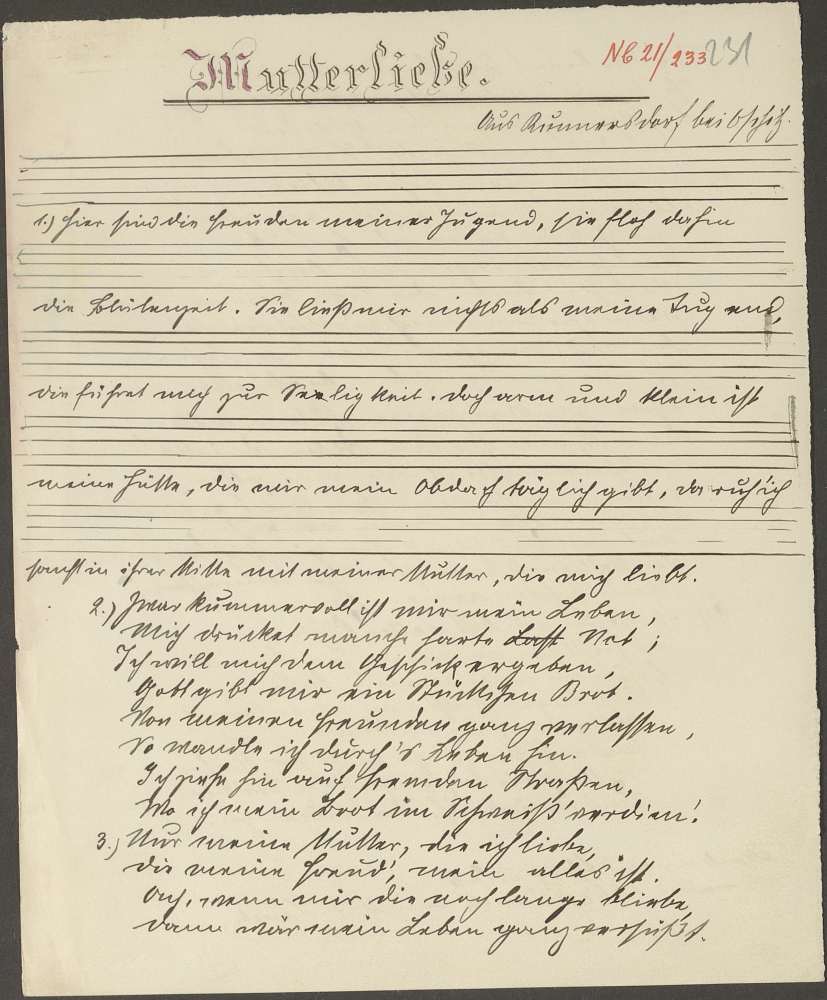 Mutterliebe.
NB 21/233 231
Aus Kunnersdorf bei Oschitz.
1.) Hier sind die Freuden meiner Jugend, sie floh dahin
die Blütenzeit. Sie ließ mir nichts als meine Tugend,
die führet mich zur Seeligkeit. Doch arm und klein ist
meine Hütte, die mir mein Obdach täglich gibt, da ruh' ich
sanft in ihrer Mitte mit meiner Mutter, die mich liebt.
2.) Zwar kummervoll ist mir mein Leben,
Mich drücket manche harte Last Not;
Ich will mich dem Geschick ergeben,
Gott gibt mir ein Stückchen Brot.
Von meinen Freunden ganz verlassen,
So wandle ich durch's Leben hin.
Ich ziehe hin auf fremden Straßen,
Wo ich mein Brot im Schweiß' verdien'.
3.) Nur meine Mutter, die ich liebe,
die meine Freud', mein alles ist.
Ach, wenn mir die noch lange bliebe,
dann wär mein Leben ganz versüßt.